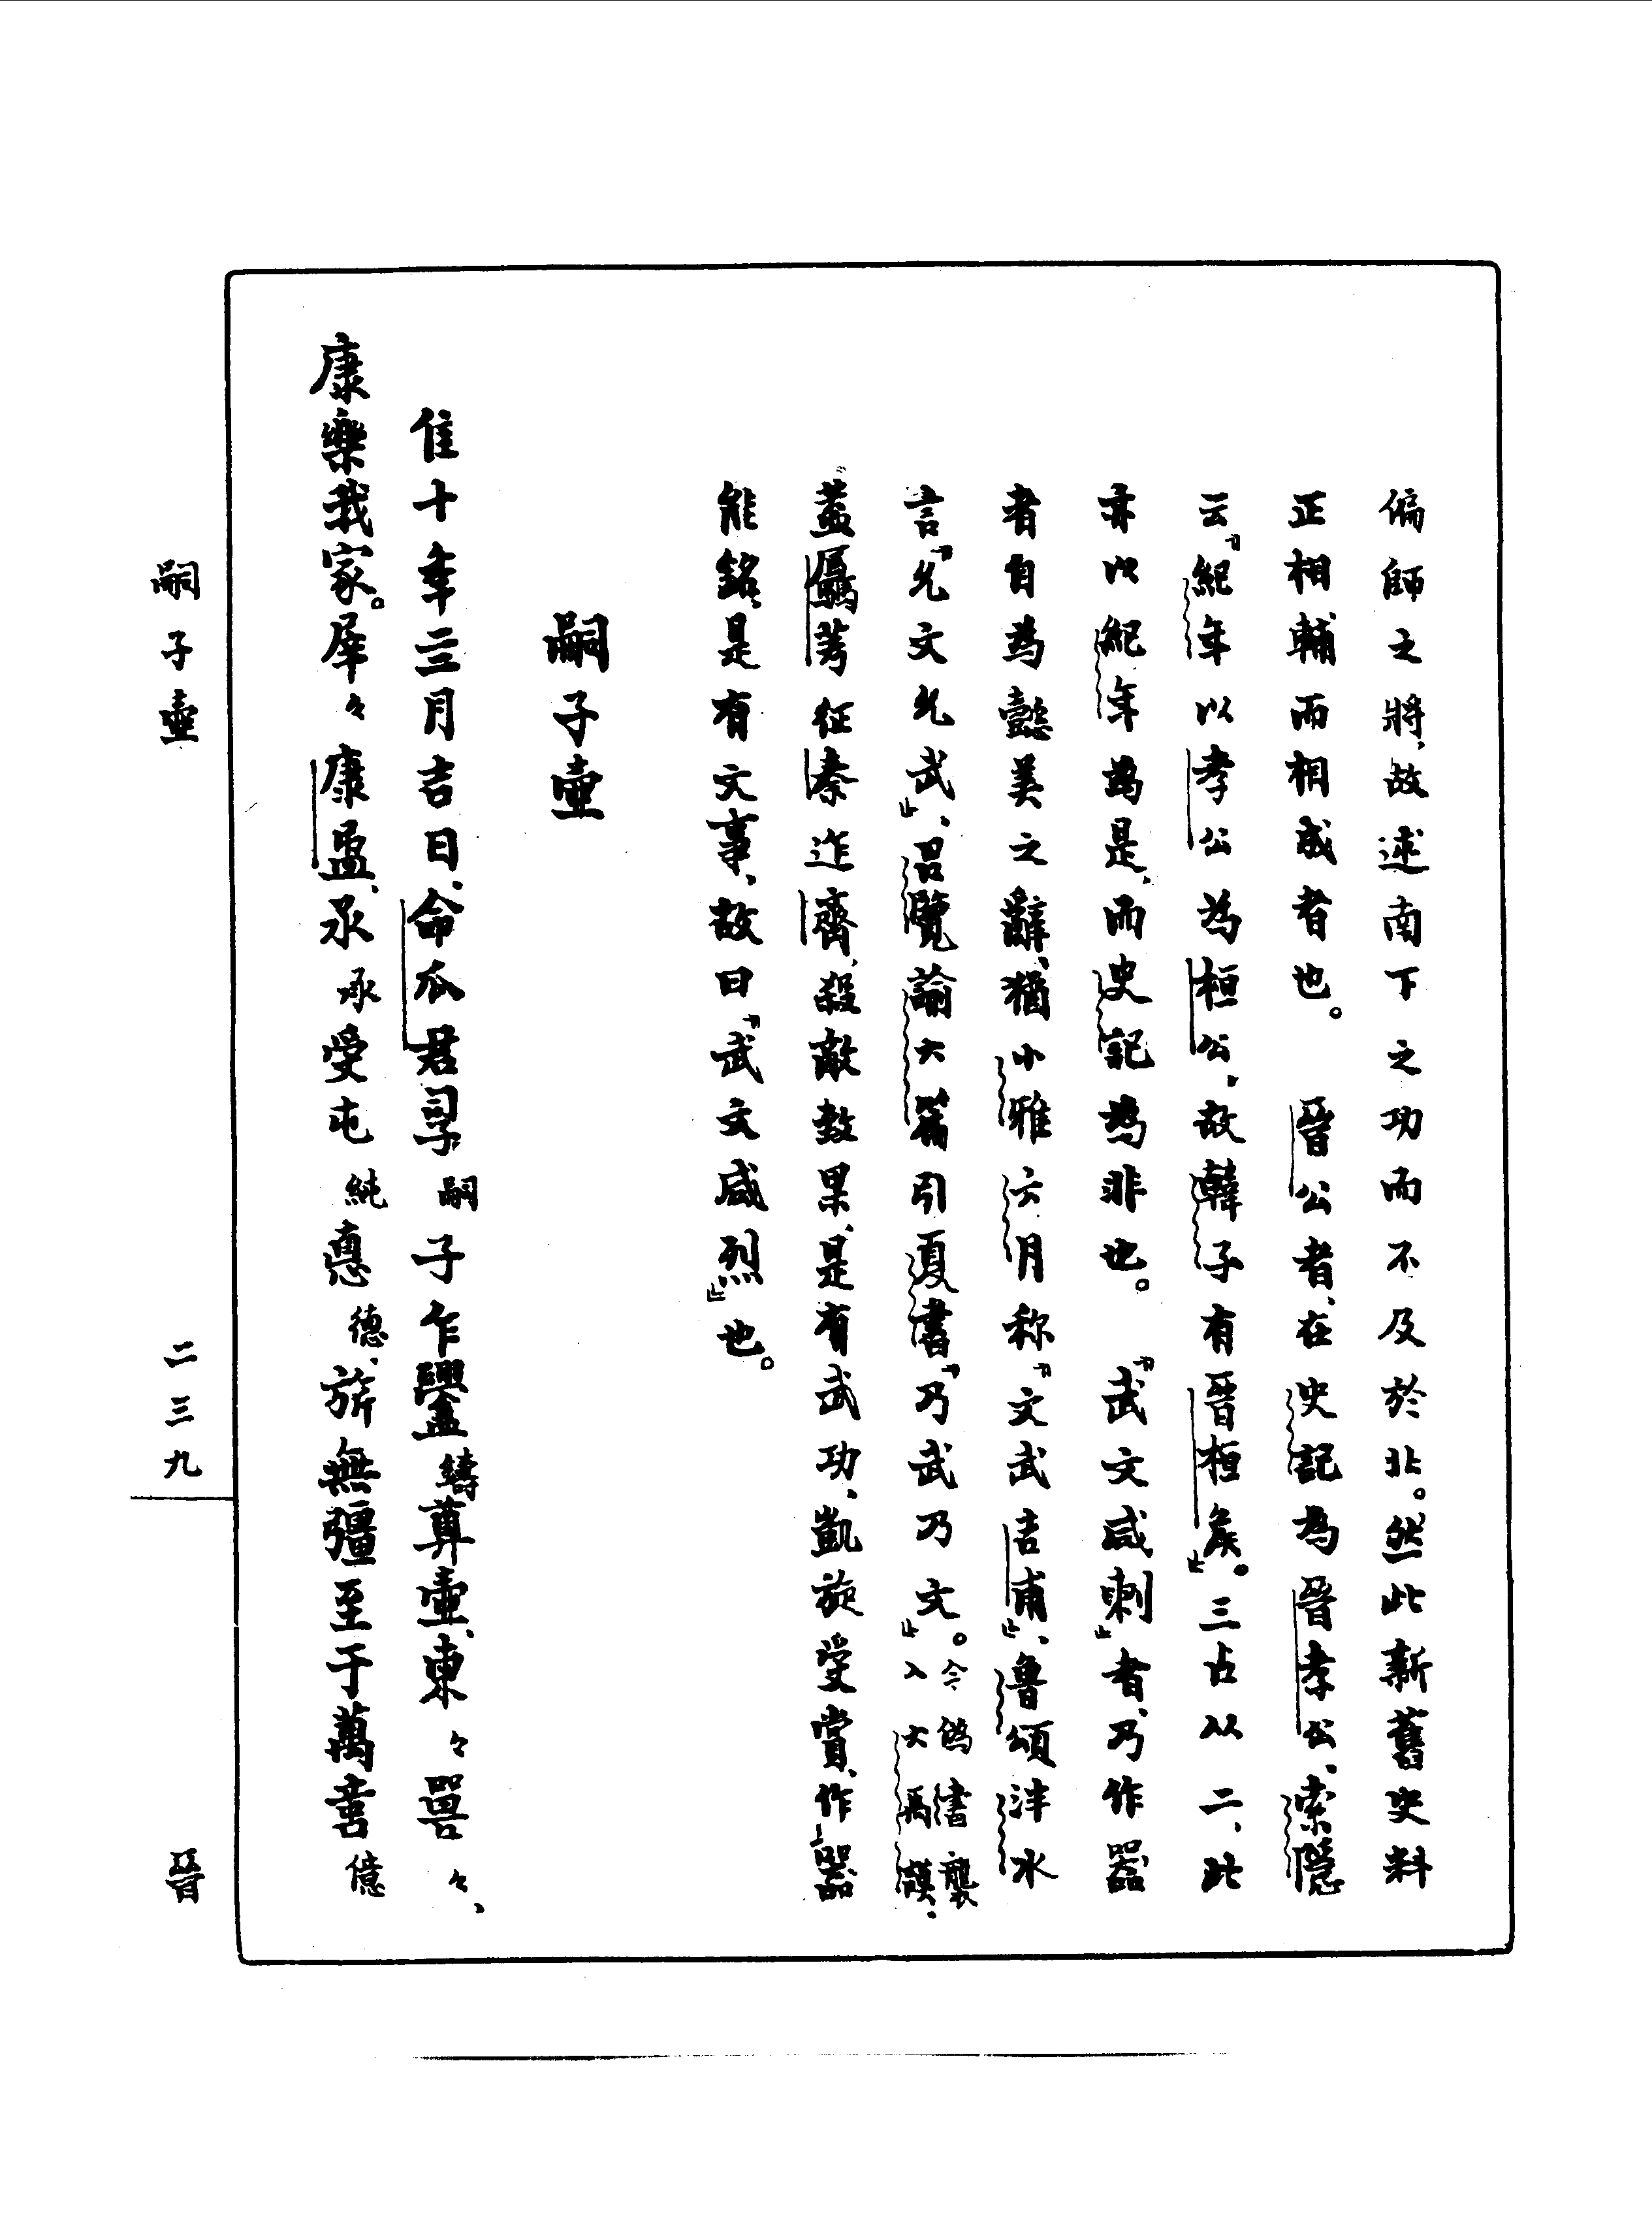 偏師之將、故述南下之功而不及於北。然此新舊史料
正相輔而相成者也。　晉公者、在史記為晉孝公、索隱
云『紀年以孝公為桓公、故韓子有晉桓矦』。三占从二、此
亦以紀年為是、而史記為非也。　『武文咸剌』者、乃作器
者自為懿美之辭、猶小雅六月称『文武吉甫』、魯頌泮水
言『允文允武』、呂覽諭大篇引夏書『乃武乃文』。今偽書襲入大禹謨、
蓋驫芎征秦迮齊、殺敵致果、是有武功、凱旋受賞、作器
能銘、是有文事、故曰『武文咸烈』也。
嗣子壺
隹十年三月吉日、命瓜君孠嗣子乍鑄尊壺、東々嘼々、
康樂我家。屖々康盄、承承受屯純悳德、旂無彊至于萬啻億
嗣子壺
二三九
晉